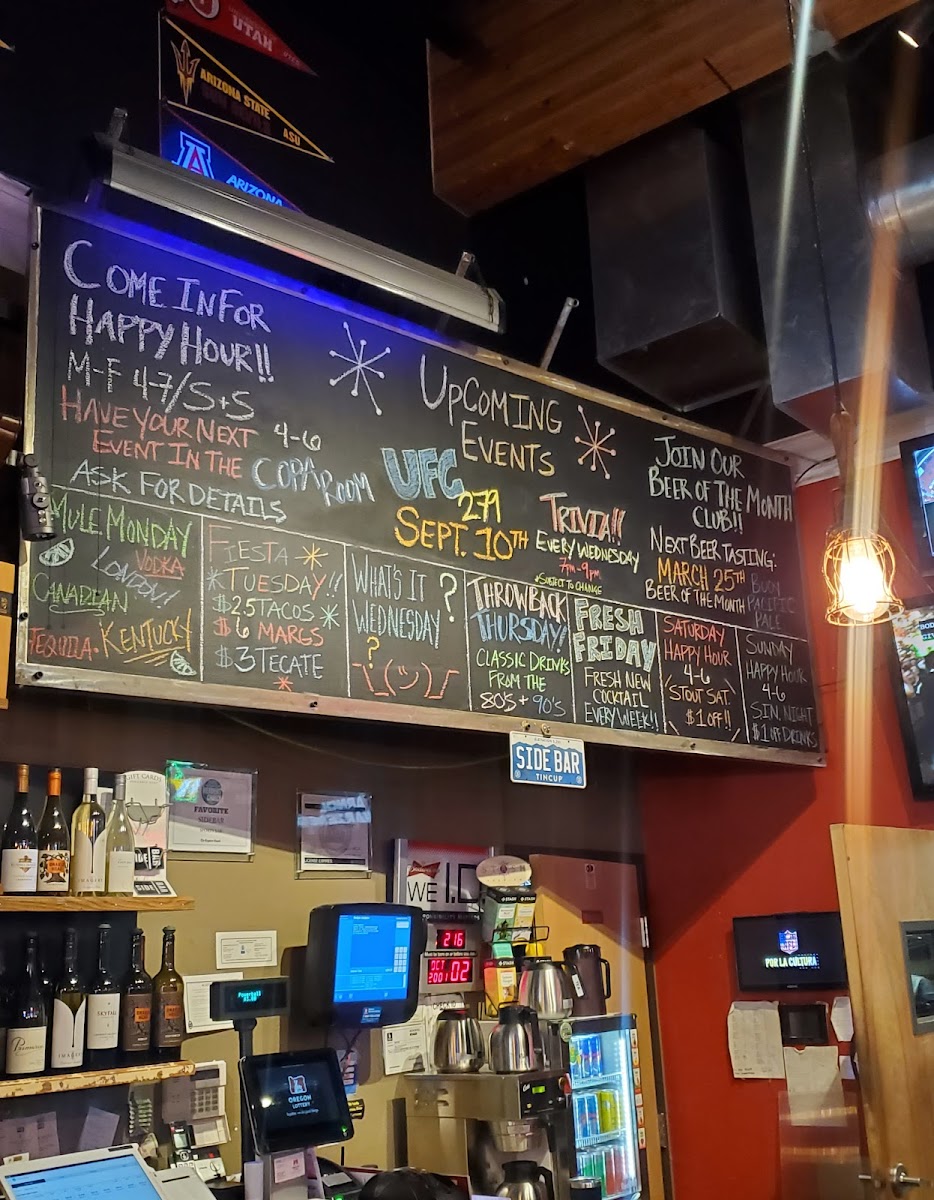 UTAH
ARIZONA STATE
SUN DEVILS
ASU
A
ARIZONA
COME IN FOR
HAPPY HOUR!!
M-F 4-7/S+S
4-6
HAVE YOUR NEXT
EVENT IN THE COPA ROOM
ASK FOR DETAILS
UPCOMING
EVENTS
UFC
279
SEPT. 10TH
TRIVIA!!
EVERY WEDNESDAY
7PM-9PM
*SUBJECT TO CHANGE
JOIN OUR
BEER OF THE MONTH
CLUB!!
NEXT BEER TASTING:
MARCH 25TH
BEER OF THE MONTH
BUOY
PACIFIC
PALE
MULE MONDAY
VODKA
LONDON!
CANADIAN
TEQUILA. KENTUCKY
FIESTA
TUESDAY!!
$2.5 TACOS
$6 MARGS
$3 TECATE
WHAT'S IT
WEDNESDAY
?
?
THROWBACK
THURSDAY!!
CLASSIC DRINKS
FROM THE
80'S + 90'S
FRESH
FRIDAY
FRESH NEW
COCKTAIL
EVERY WEEK!!
SATURDAY
HAPPY HOUR
4-6
STOUT SAT.
$1 OFF!!
SUNDAY
HAPPY HOUR
4-6
S.I.N. NIGHT
$1 OFF DRINKS
SIDE BAR
TINCUP
GIFT CARDS
FAVORITE
SIDEBAR
WE I.D.
216
OCT
2001 02
STASH
STASH
NFL
POR LA CULTURA
OREGON
LOTTERY